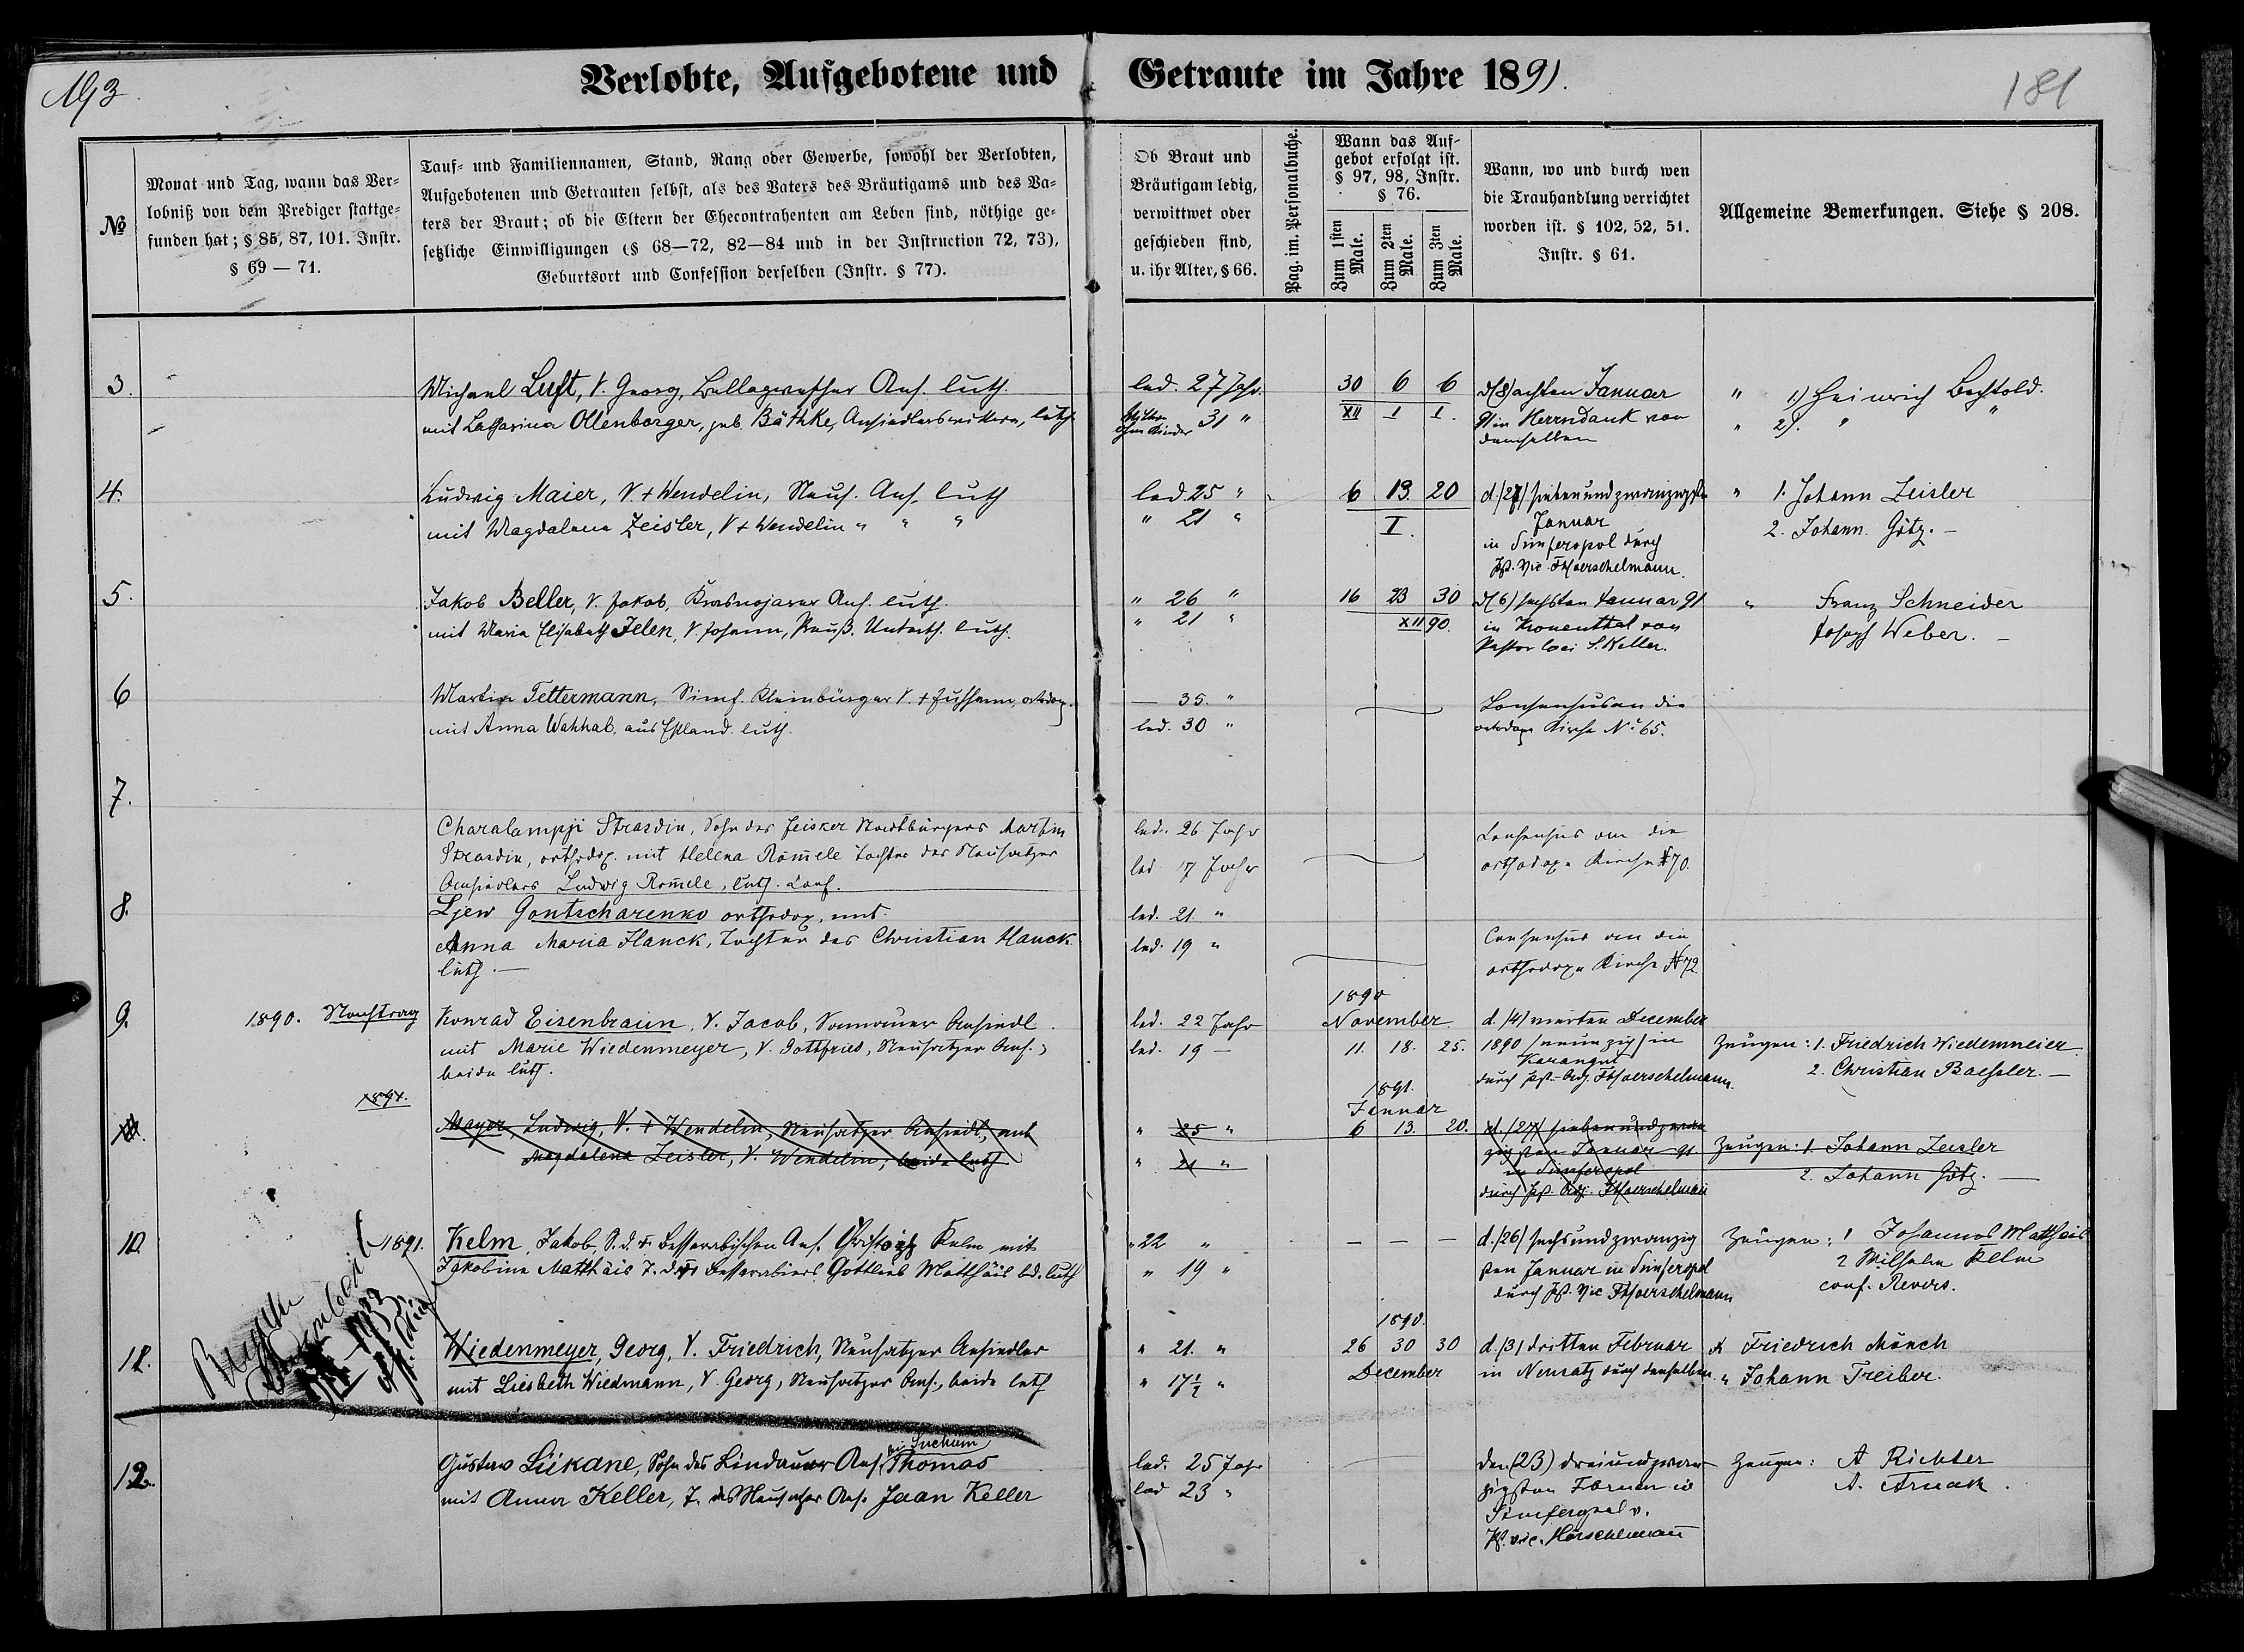 193.
Verlobte, Aufgebotene und Getraute im Jahre 1891.
181
№
Monat und Tag, wann das Ver-
lobniß von dem Prediger stattge-
funden hat; § 85, 87, 101. Instr.
§ 69 — 71.
Tauf- und Familiennamen, Stand, Rang oder Gewerbe, sowohl der Verlobten,
Aufgebotenen und Getrauten selbst, als des Vaters des Bräutigams und des Va-
ters der Braut; ob die Eltern der Ehecontrahenten am Leben sind, nöthige ge-
setzliche Einwilligungen (§ 68—72, 82—84 und in der Instruction 72, 73),
Geburtsort und Confession derselben (Instr. § 77).
Ob Braut und
Bräutigam ledig,
verwittwet oder
geschieden sind,
u. ihr Alter, § 66.
Pag. im. Personalbuche.
Wann das Auf-
gebot erfolgt ist.
§ 97, 98, Instr.
§ 76.
Zum 1sten Male.
Zum 2ten Male.
Zum 3ten Male.
Wann, wo und durch wen
die Trauhandlung verrichtet
worden ist. § 102, 52, 51.
Instr. § 61.
Allgemeine Bemerkungen. Siehe § 208.
3.
Michael Luft, V. Georg, Ans. luth.
mit Catharina Ollenborger, geb. Bäthke, luth.
led. 27 Jahr.
ohne Kinder 31 "
30 6 6
XII I I.
d (8) achten Januar
91 in Herrndank von
demselben
" 1.) Heinrich Bechtold.
" 2). " "
4.
Ludwig Maier, V. + Wendelin, Neus. Ans. luth
mit Magdalena Zeisler, V + Wendelin " " "
led. 25 "
" 21 "
6 13. 20
I.
d. (27) siebenundzwanzigsten
Januar
in Simferopol durch
Pst. Vic. FHoerschelmann.
" 1. Johann Zeisler
2. Johann Götz. —
5.
Jakob Beller, V. Jakob, Krasnojarer Ans. luth.
mit Maria Elisabeth Jelen, V. Johann, Preuß. Unterth. luth.
" 26 "
" 21 "
16 23 30
XII 90.
d (6) sechsten Januar 91
in Kronenthal von
Pastor loci S. Keller.
" Franz Schneider
Joseph Weber. —
6
Martin Tettermann, Simf. Kleinbürger V. + orthodox.
mit Anna Wahhab, aus Estland. luth.
— 35. "
led. 30 "
Consensus an die
orthodoxe Kirche № 65.
7.
Charalampji Strasdin, Sohn des Jeisker Stadtbürgers Martin
Strasdin, orthodox. mit Helena Römele Tochter des Neusatzer
Ansiedlers Ludwig Römele, luth. Conf.
led. 26 Jahr
led. 17 Jahr
Consensus an die
orthodoxe Kirche № 70.
8.
Ljew Gontscharenko orthodox, mit
Anna Maria Hanck, Tochter des Christian Hanck
luth. —
led. 21 "
led. 19 "
Consensus an die
orthodoxe Kirche № 72
9.
1890. Nachtrag
Konrad Eisenbraun, V. Jacob, Ansiedl.
mit Marie Wiedenmeyer, V. Gottfried, Neusatzer Ans.,
beide luth.
led. 22 Jahr
led. 19 —
1890
November
11. 18. 25.
d. (4) vierten December
1890 (neunzig) in
Karangut
durch Pst.-Adj. FHoerschelmann.
Zeugen: 1. Friedrich Wiedenmeier
2. Christian Baessler. —
1891.
10.
Mayer, Ludwig, V. + Wendelin, Neusatzer Ansiedl, mit
Magdalena Zeisler, V. Wendelin; beide luth
" 25 "
" 21 "
1891.
Januar
6 13. 20.
d. (27) siebenundzwan-
zigsten Januar 91.
in Simferopol
durch Pst. Adj. FHoerschelmann
Zeugen: 1. Johann Zeisler
2. Johann Götz. —
10.
1891.
Kelm, Jakob, S. d. Bessarabischen Ans. Christoph Kelm mit
Jakobine Matthäis T. des Bessarabiers Gottlieb Matthäis bd. luth
" 22 "
" 19 "
— — —
d. (26) sechsundzwanzig
sten Januar in Simferopol
durch Pst. Vic FHoerschelmann
Zeugen: 1 Johannes Matthais
2 Wilhelm Kelm
conf. Revers.
11.
Wiedenmeyer, Georg, V. Friedrich, Neusatzer Ansiedler
mit Liesbeth Wiedmann, V. Georg, Neusatzer Ans., beide luth
" 21. "
" 17½ "
1890.
26 30 30
December
d. (3) dritten Februar
in Neusatz durch denselben
Friedrich Mönch
" Johann Treiber.
12.
Gustav Lükane, Sohn des Lindauer Ans. bei Suchum Thomas
mit Anna Keller, T. des Neusatzer Ans. Jaan Keller
led. 25 Jahr
led 23 "
den (23) dreiundzwan-
zigsten Februar in
Simferopol v.
Pst. vic. Hörschelmann
Zeugen: A Richter
A. Arnak.